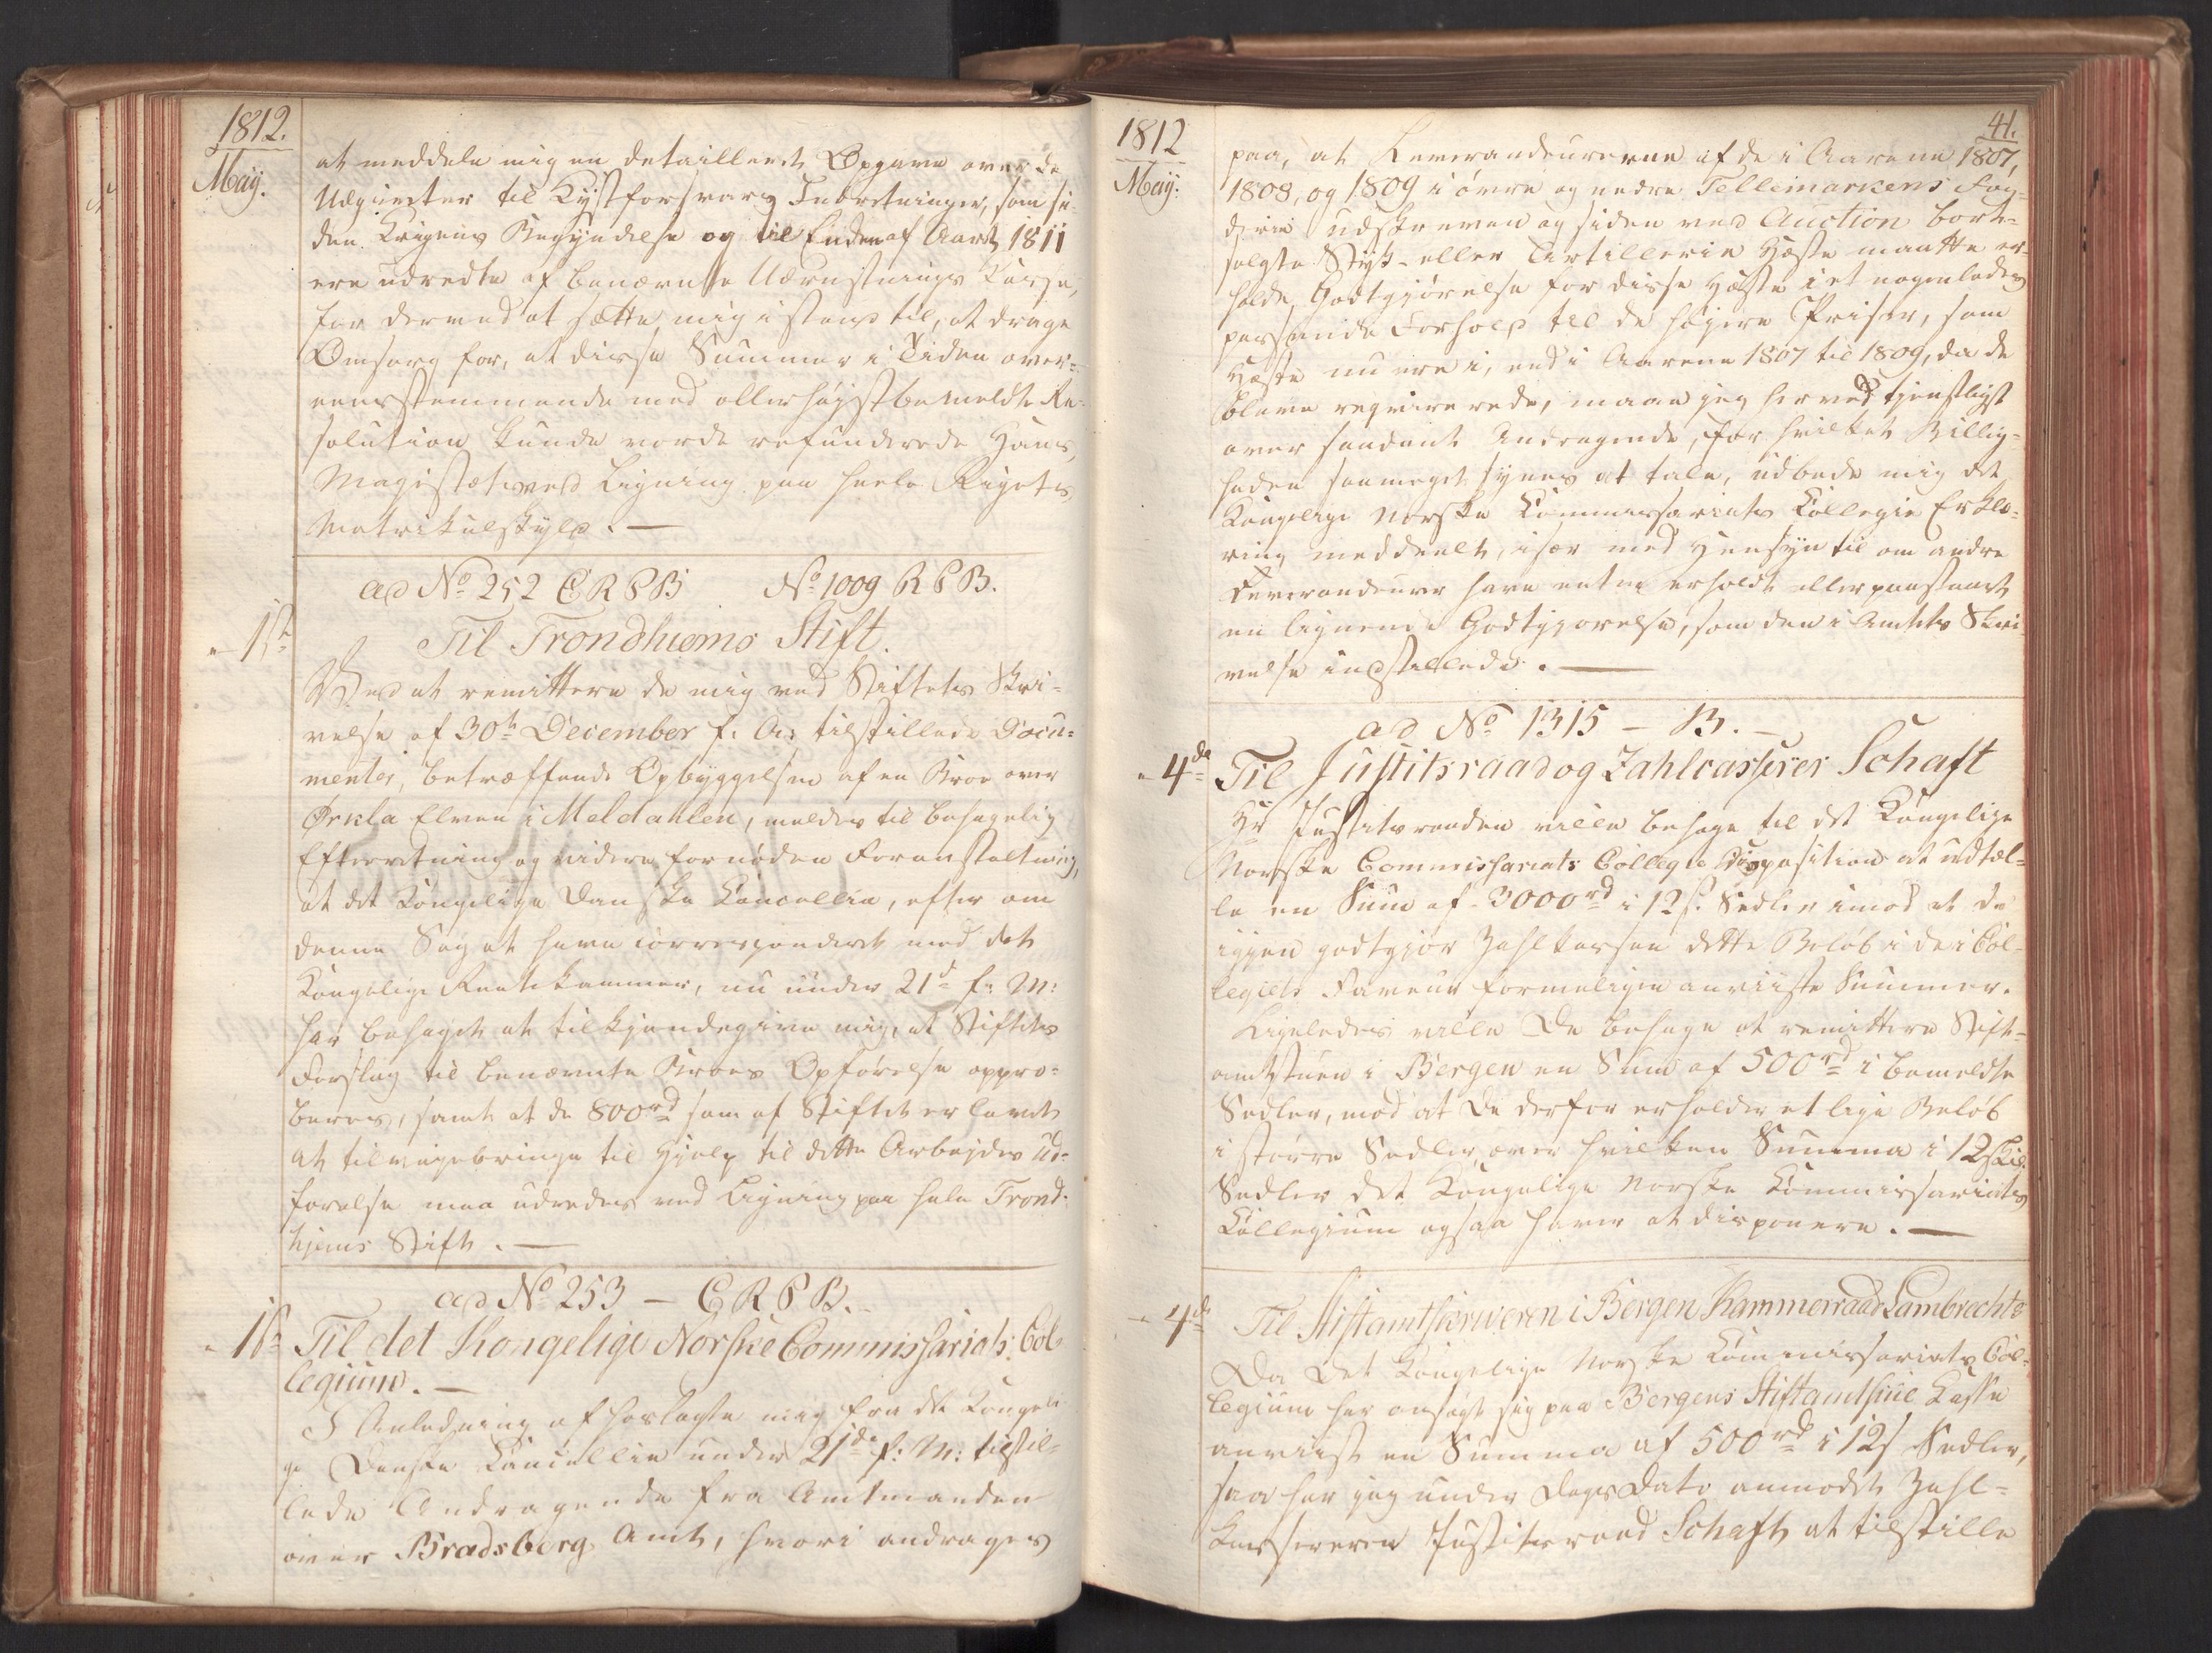 1812.
May.
at meddele mig en detailleret Opgave over de
Udgivter til Kystforsvars Indretninger, som si-
den Krigens Begyndelse og til Enden af Aaret 1811
ere udredte af benævnte Udrustnings Casse,
for derved at sætte mig i stand til, at drage
Omsorg for, at disse Summer i Tiden over-
eensstemmende med allerhøjstbemeldte Re-
solution kunde vorde refunderede Hans
Majestæt ved Ligning paa heele Rigets
Matrikulskyld. —
ad No 252 C R P B No 1009 R P B.
- 1ste
Til Trondhiems Stift.
Ved at remittere de mig ved Stiftets Skri-
velse af 30te December f. A. tilstillede Docu-
menter, betræffende Opbyggelsen af en Broe over
Ørkla Elven i Meldahlen, meldes til behagelig
Efterretning og videre fornøden Foranstaltning,
at det Kongelige Danske Cancellie, efter om
denne Sag at have corresponderet med det
Kongelige Rentekammer, nu under 21de f. M:
har behaget at tilkjendegive mig, at Stiftets
Forslag til benævnte Broes Opførelse appro-
beres, samt at de 800rd som af Stiftet er lovet
at tilvejebringe til Hjelp til dette Arbejdes Ud-
førelse maa udredes ved Ligning paa hele Trond-
hjems Stift. —
ad No 253 — C R P B.
- 1ste
Til det Kongelige Norske Commissariats: Col-
legium. —
I Anledning af hoslagte mig fra det Kongeli-
ge Danske Cancellie under 21de f: M: tilstil-
lede Andragende fra Amtmanden
over Bradsberg Amt, hvori andrages
41.
1812
May:
paa, at Leverandeurerne af de i Aarene 1807,
1808, og 1809 i øvre og nedre Tellemarkens Fog-
derie udskreven og siden ved Auction bort-
solgte Stÿk- eller Artillerie Heste maatte er-
holde Godtgjørelse for disse Heste i et nogenledes
passende Forhold til de højere Priser, som
Heste nu ere i, end i Aarene 1807 til 1809, da de
bleve reqvirerede, maae jeg herved tjenstligst
over saadant Andragende, for hvilket Billig-
heden saameget synes at tale, udbede mig det
Kongelige Norske Commissariats Collegie Erklæ-
ring meddeelt, især med Hensyn til om andre
Leverandeurer have enten erholdt eller paastaaet
en lignende Godtgjørelse, som den i Amtets Skri-
velse indstillede. —
ad No 1315 — B. —
- 4de
Til Justitsraad og Zahlcasserer Schaft
Hr Justitsraaden ville behage til det Kongelige
Norske Commissariats Collegie Disposition at udtæl-
le en Sum af 3000rd i 12 s. Sedler imod at de
igjen godtgjør Zahlkassen dette Beløb i de i Col-
legiets Faveur formeligen anviiste Summer.
Ligeledes ville De behage at remittere Stift-
amtstuen i Bergen en Sum af 500rd i bemeldte
Sedler, mod at De derfor erholder et lige Beløb
i større Sedler, over hvilken Summa i 12 skil:
Sedler det Kongelige Norske Commissariats
Collegium ogsaa haver at disponere. —
- 4de
Til Stiftamtskriveren i Bergen Kammerraad Lambrechts
Da det Kongelige Norske Commissariats Col-
legium har ansøgt sig paa Bergens Stiftamtstue Casse
anviist en Summa af 500rd i 12 s Sedler,
saa har jeg under Dags Dato anmodet Zahl-
kassereren Justitsraad Schaft at tilstille